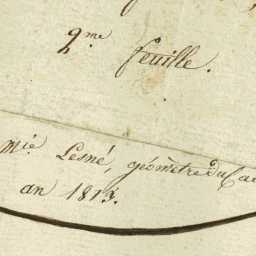 2.me feuille.
Mie Lesné, géomètre du Ca
an 1813.